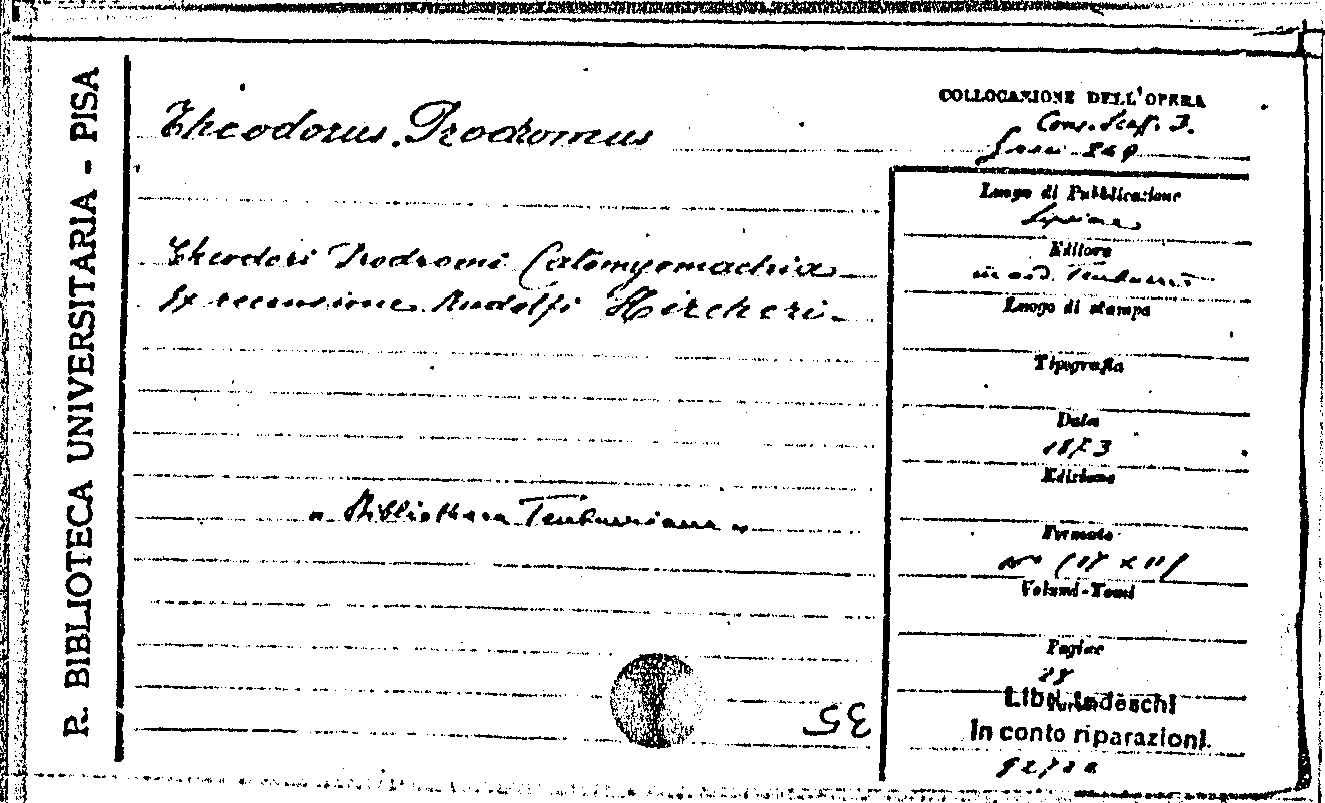 R. BIBLIOTECA UNIVERSITARIA - PISA
Theodorus Prodromus
COLLOCAZIONE DELL'OPERA
Cons. Scaf. I.
Theodori Prodromi Catomyomachia
Ex recensione Rudolfi Hercheri
« Bibliotheca Teubneriana »
35
Luogo di Pubblicazione
Lipsiae
Editore
in aed. Teubneri
Luogo di stampa
Tipografia
Data
1873
Edizione
Formato
Volumi-Tomi
Pagine
Libri tedeschi
In conto riparazioni.